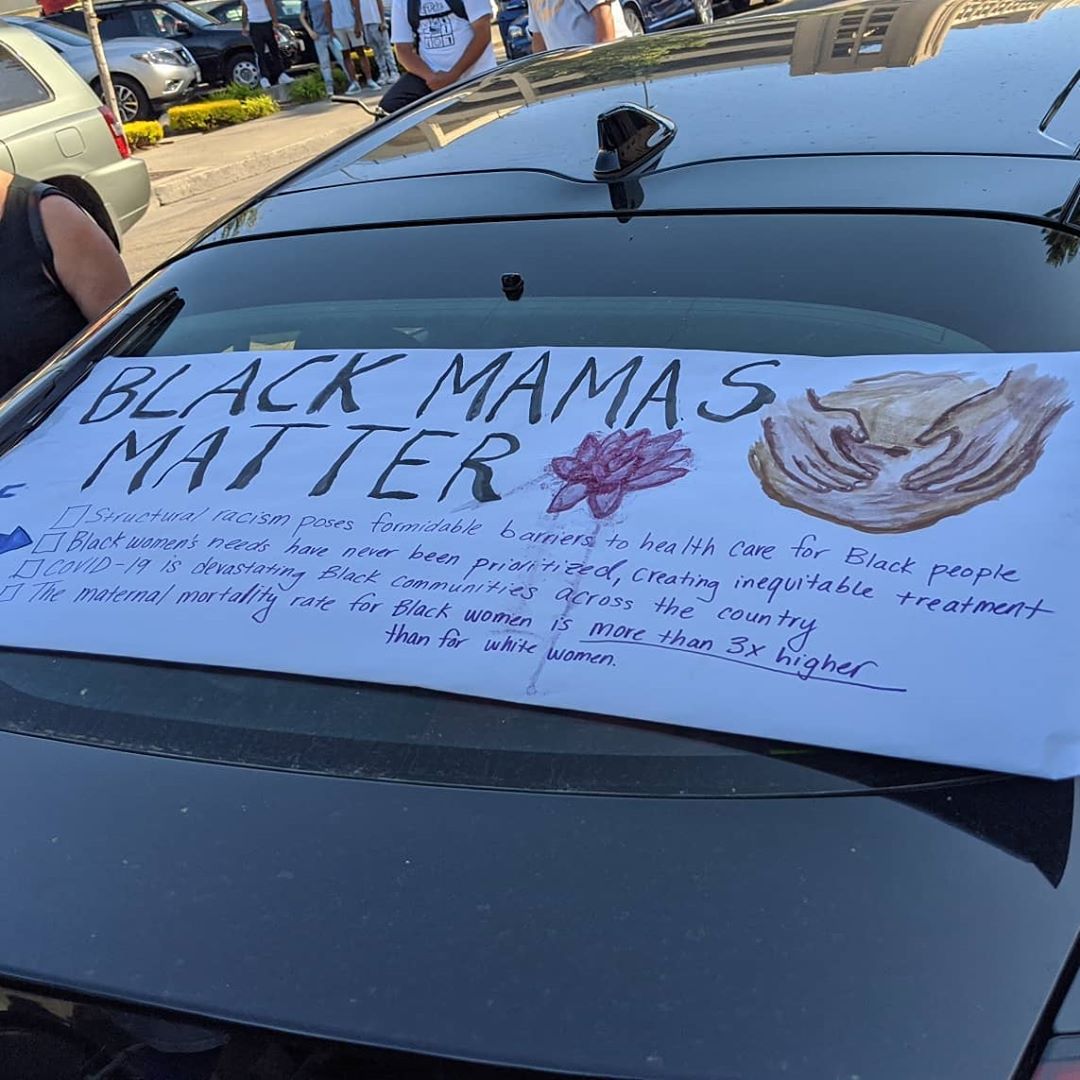 BLACK MAMAS
MATTER
Structural racism poses formidable barriers to health care for Black people
Black women's needs have never been prioritized, creating inequitable treatment
COVID-19 is devastating Black communities across the country
The maternal mortality rate for Black women is more than 3x higher
than for white women.